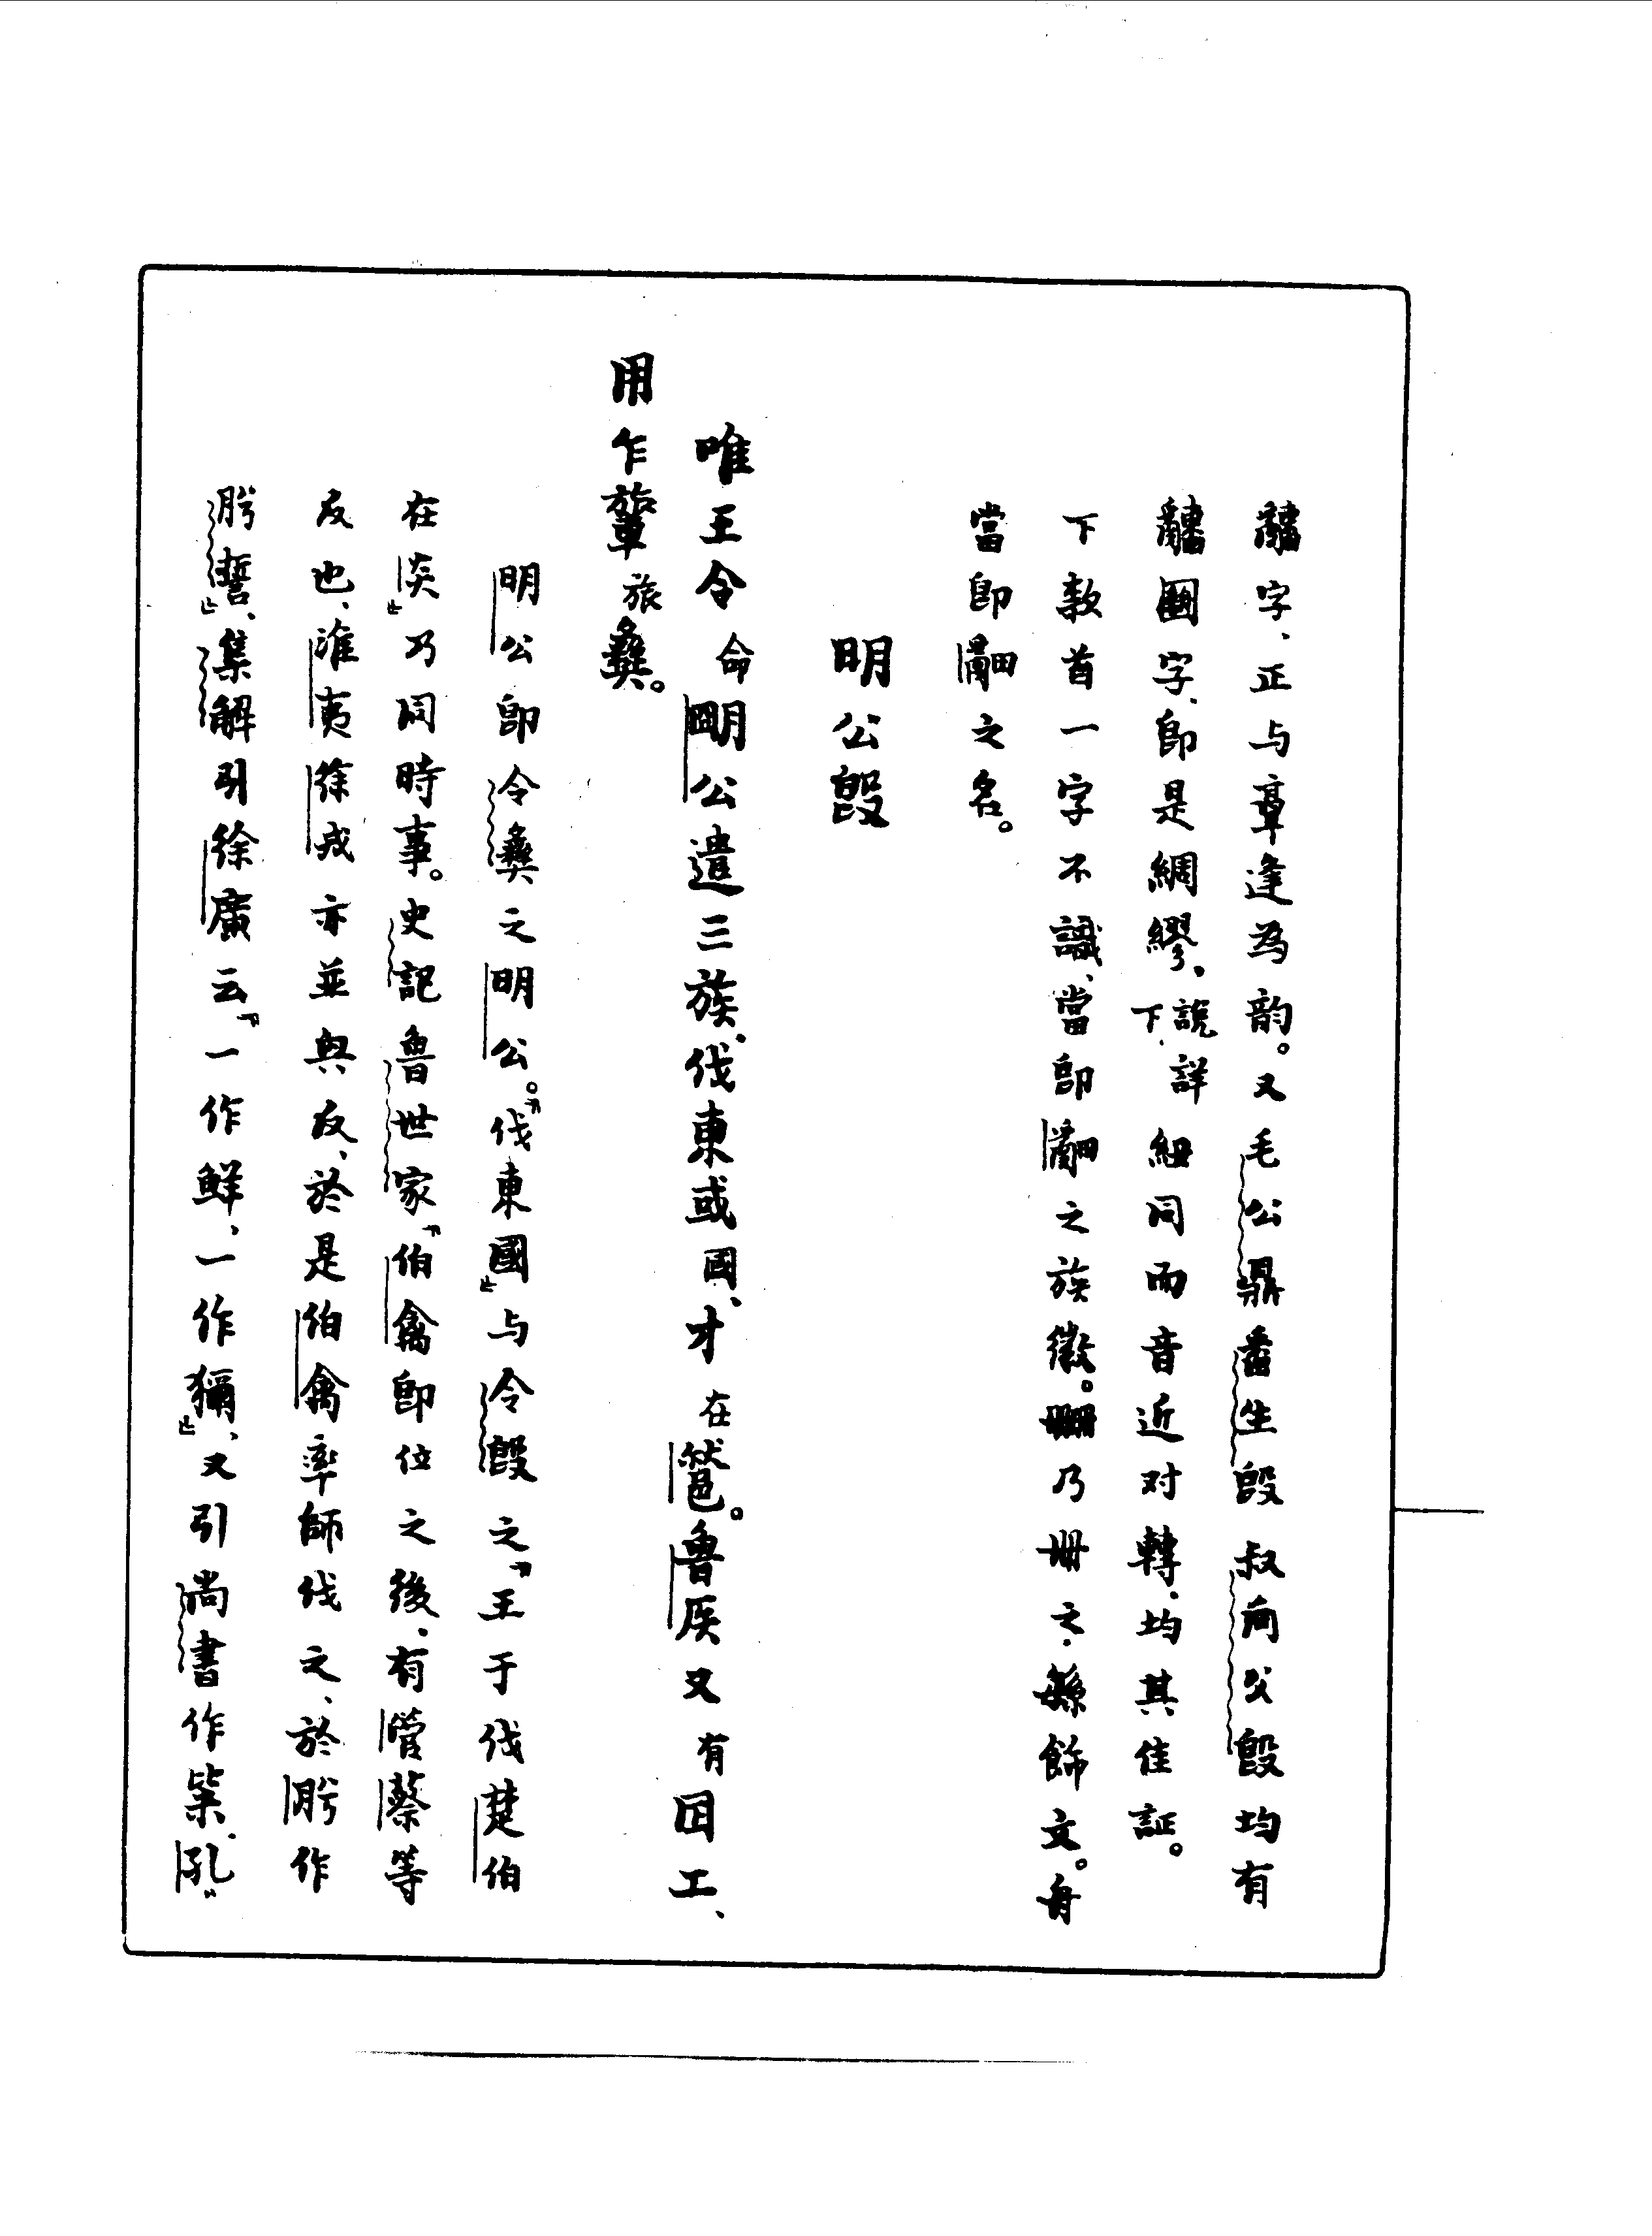 字、正与章逢為韵。又毛公鼎番生𣪘叔向父𣪘均有
圞字、即是綢繆、說詳下、紐同而音近对轉、均其佳証。
下款首一字不識、當即之族徽。乃册之繇飾文。舟
當即之名。
明公𣪘
唯王令命明公遣三族、伐東或國、才在。魯侯又有囗工、
用乍旅彝。
明公即令彝之明公。「伐東國」与令𣪘之「王于伐楚伯
在炎」乃同時事。史記魯世家「伯禽即位之後、有管蔡等
反也、淮夷徐戎亦並興反、於是伯禽率師伐之、於肹作
肹誓」、集解引徐廣云「一作鮮、一作獮」、又引尚書作粊、孔